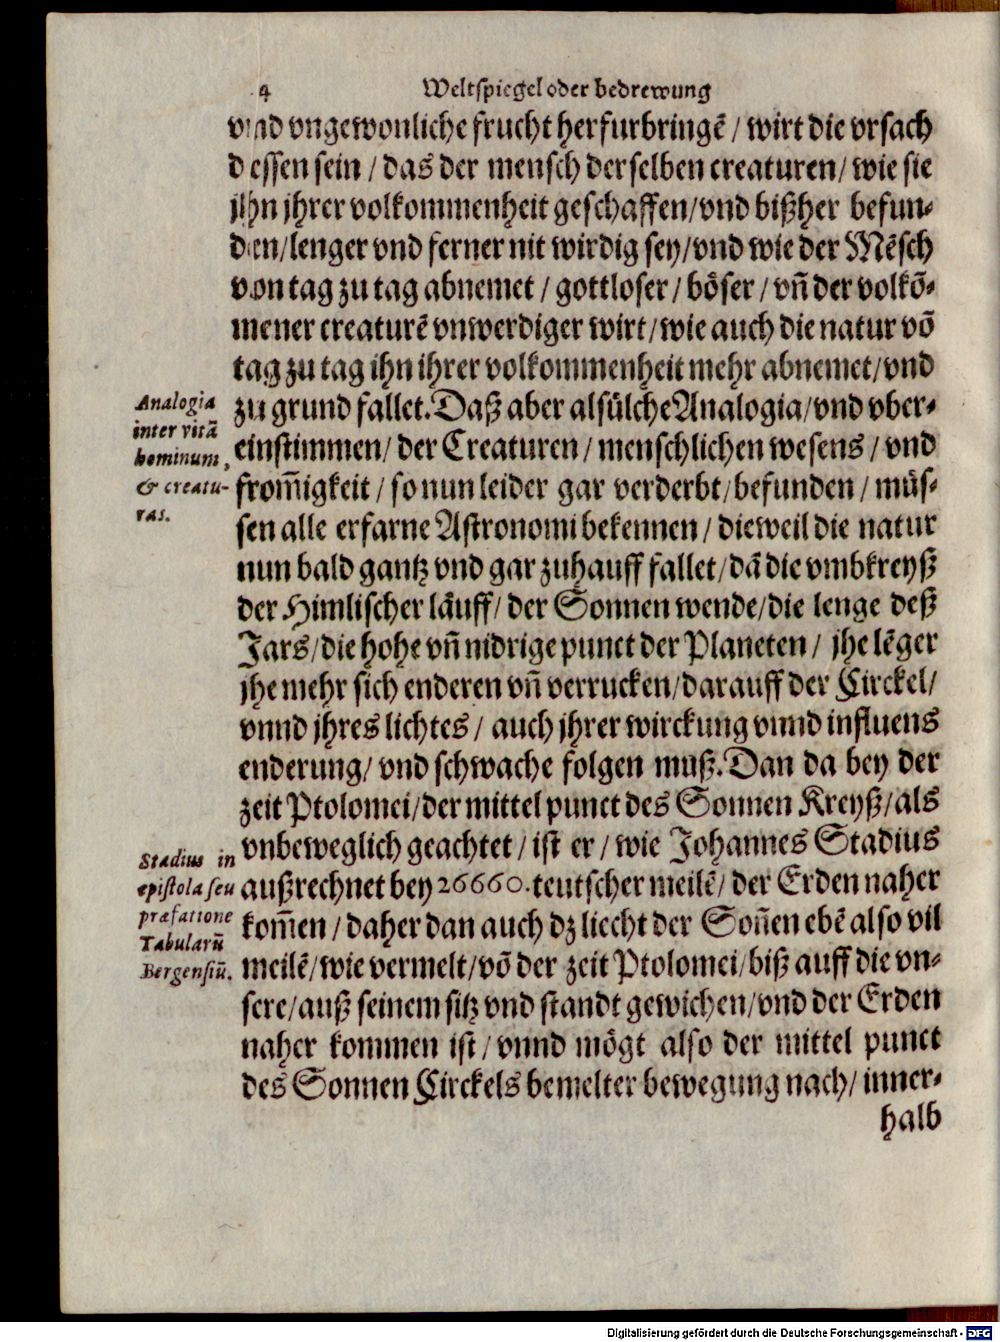 4 Weltspiegel oder bedrewung
vnd vngewonliche frucht herfurbringẽ / wirt die vrsach
dessen sein / das der mensch derselben creaturen / wie sie
jhn jhrer volkommenheit geschaffen / vnd bißher befun-
den / lenger vnd ferner nit wirdig sey / vnd wie der Mẽsch
von tag zu tag abnemet / gottloser / böser / vñ der volkõ-
mener creaturẽ vnwerdiger wirt / wie auch die natur võ
tag zu tag ihn ihrer volkommenheit mehr abnemet / vnd
zu grund fallet. Daß aber alsülche Analogia / vnd vber-
einstimmen / der Creaturen / menschlichen wesens / vnd
from̃igkeit / so nun leider gar verderbt / befunden / müs-
sen alle erfarne Astronomi bekennen / dieweil die natur
nun bald gantz vnd gar zuhauff fallet / dã die vmbkreyß
der Himlischer läuff / der Sonnen wende / die lenge deß
Jars / die hohe vñ nidrige punct der Planeten / jhe lẽger
jhe mehr sich enderen vñ verrucken / darauff der Circkel /
vnnd jhres lichtes / auch jhrer wirckung vnnd influens
enderung / vnd schwache folgen muß. Dan da bey der
zeit Ptolomei / der mittel punct des Sonnen Kreyß / als
vnbeweglich geachtet / ist er / wie Johannes Stadius
außrechnet bey 26660. teutscher meilẽ / der Erden naher
kom̃en / daher dan auch dz liecht der Soñen ebẽ also vil
meilẽ / wie vermelt / võ der zeit Ptolomei / biß auff die vn-
sere / auß seinem sitz vnd standt gewichen / vnd der Erden
naher kommen ist / vnnd mögt also der mittel punct
des Sonnen Circkels bemelter bewegung nach / inner-
halb
Analogia
inter vitã
hominum,
& creatu-
ras.
Stadius in
epistola seu
præfatione
Tabularũ
Bergensiũ.
Digitalisierung gefördert durch die Deutsche Forschungsgemeinschaft - DFG